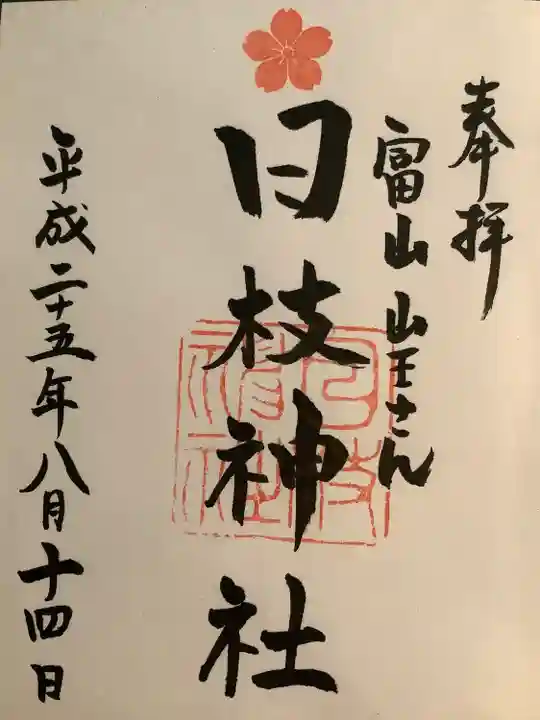 奉拝
富山 山王さん
日枝神社
日枝神社
平成二十五年八月十四日